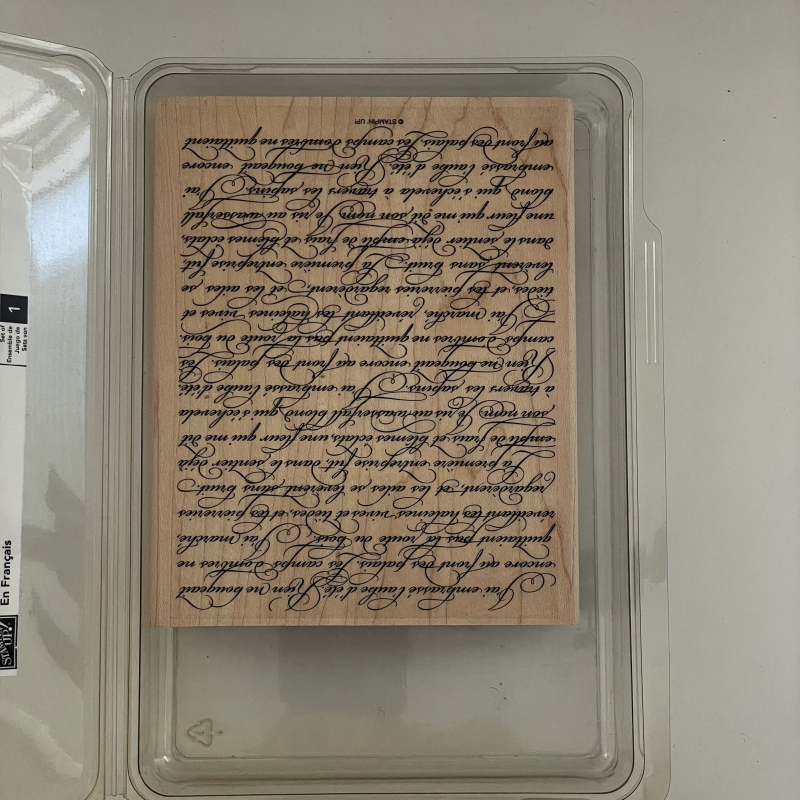 J'ai embrassé l'aube d'été. Rien ne bougeait
encore au front des palais. Les camps d'ombres ne
quittaient pas la route du bois. J'ai marché,
réveillant les haleines vives et tièdes, et les pierreries
regardèrent, et les ailes se levèrent sans bruit.
La première entreprise fut, dans le sentier déjà
empli de frais et blêmes éclats, une fleur qui me dit
son nom. Je ris au wasserfall blond qui s'échevela
à travers les sapins. J'ai embrassé l'aube d'été
Rien ne bougeait encore au front des palais. Les
camps d'ombres ne quittaient pas la route du bois.
J'ai marché, réveillant les haleines vives et
tièdes, et les pierreries regardèrent, et les ailes se
levèrent sans bruit. La première entreprise fut,
dans le sentier déjà empli de frais et blêmes éclats,
une fleur qui me dit son nom. Je ris au wasserfall
blond qui s'échevela à travers les sapins. J'ai
embrassé l'aube d'été. Rien ne bougeait encore
au front des palais. Les camps d'ombres ne quittaient
© STAMPIN' UP!
STAMPIN' UP!
En Français
Set of
Ensemble de
Juego de
Satz von
1